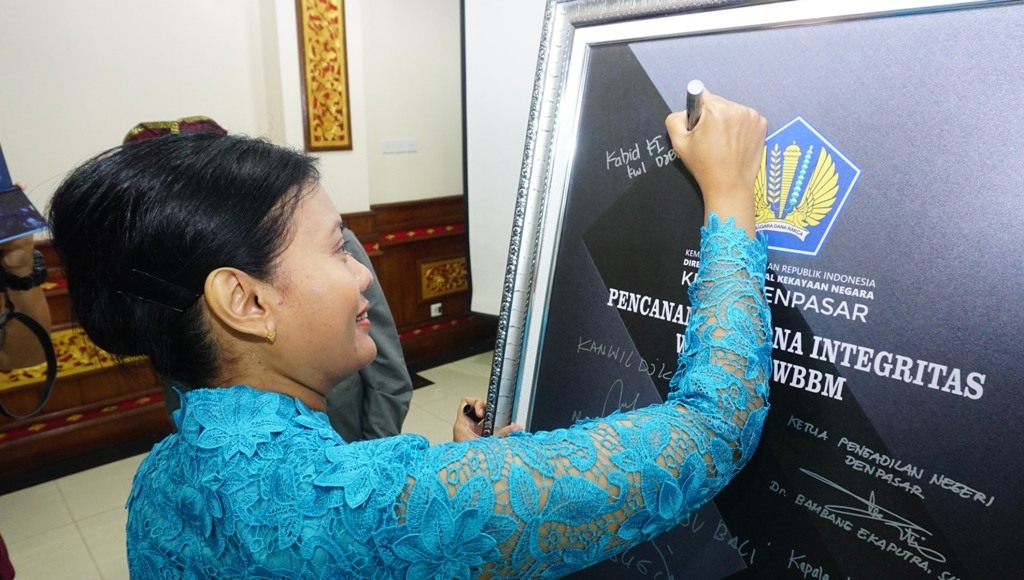 Kabid KI
KWI DJK
NAGARA DANA RAKCA
KEM
AN REPUBLIK INDONESIA
DIRE
AL KEKAYAAN NEGARA
K
DENPASAR
PENCANA
NA INTEGRITAS
W
WBBM
KANWIL DJK
KETUA PENGADILAN NEGERI
DENPASAR
Dr. BAMBANG EKAPUTRA, S
BALI
Kepala